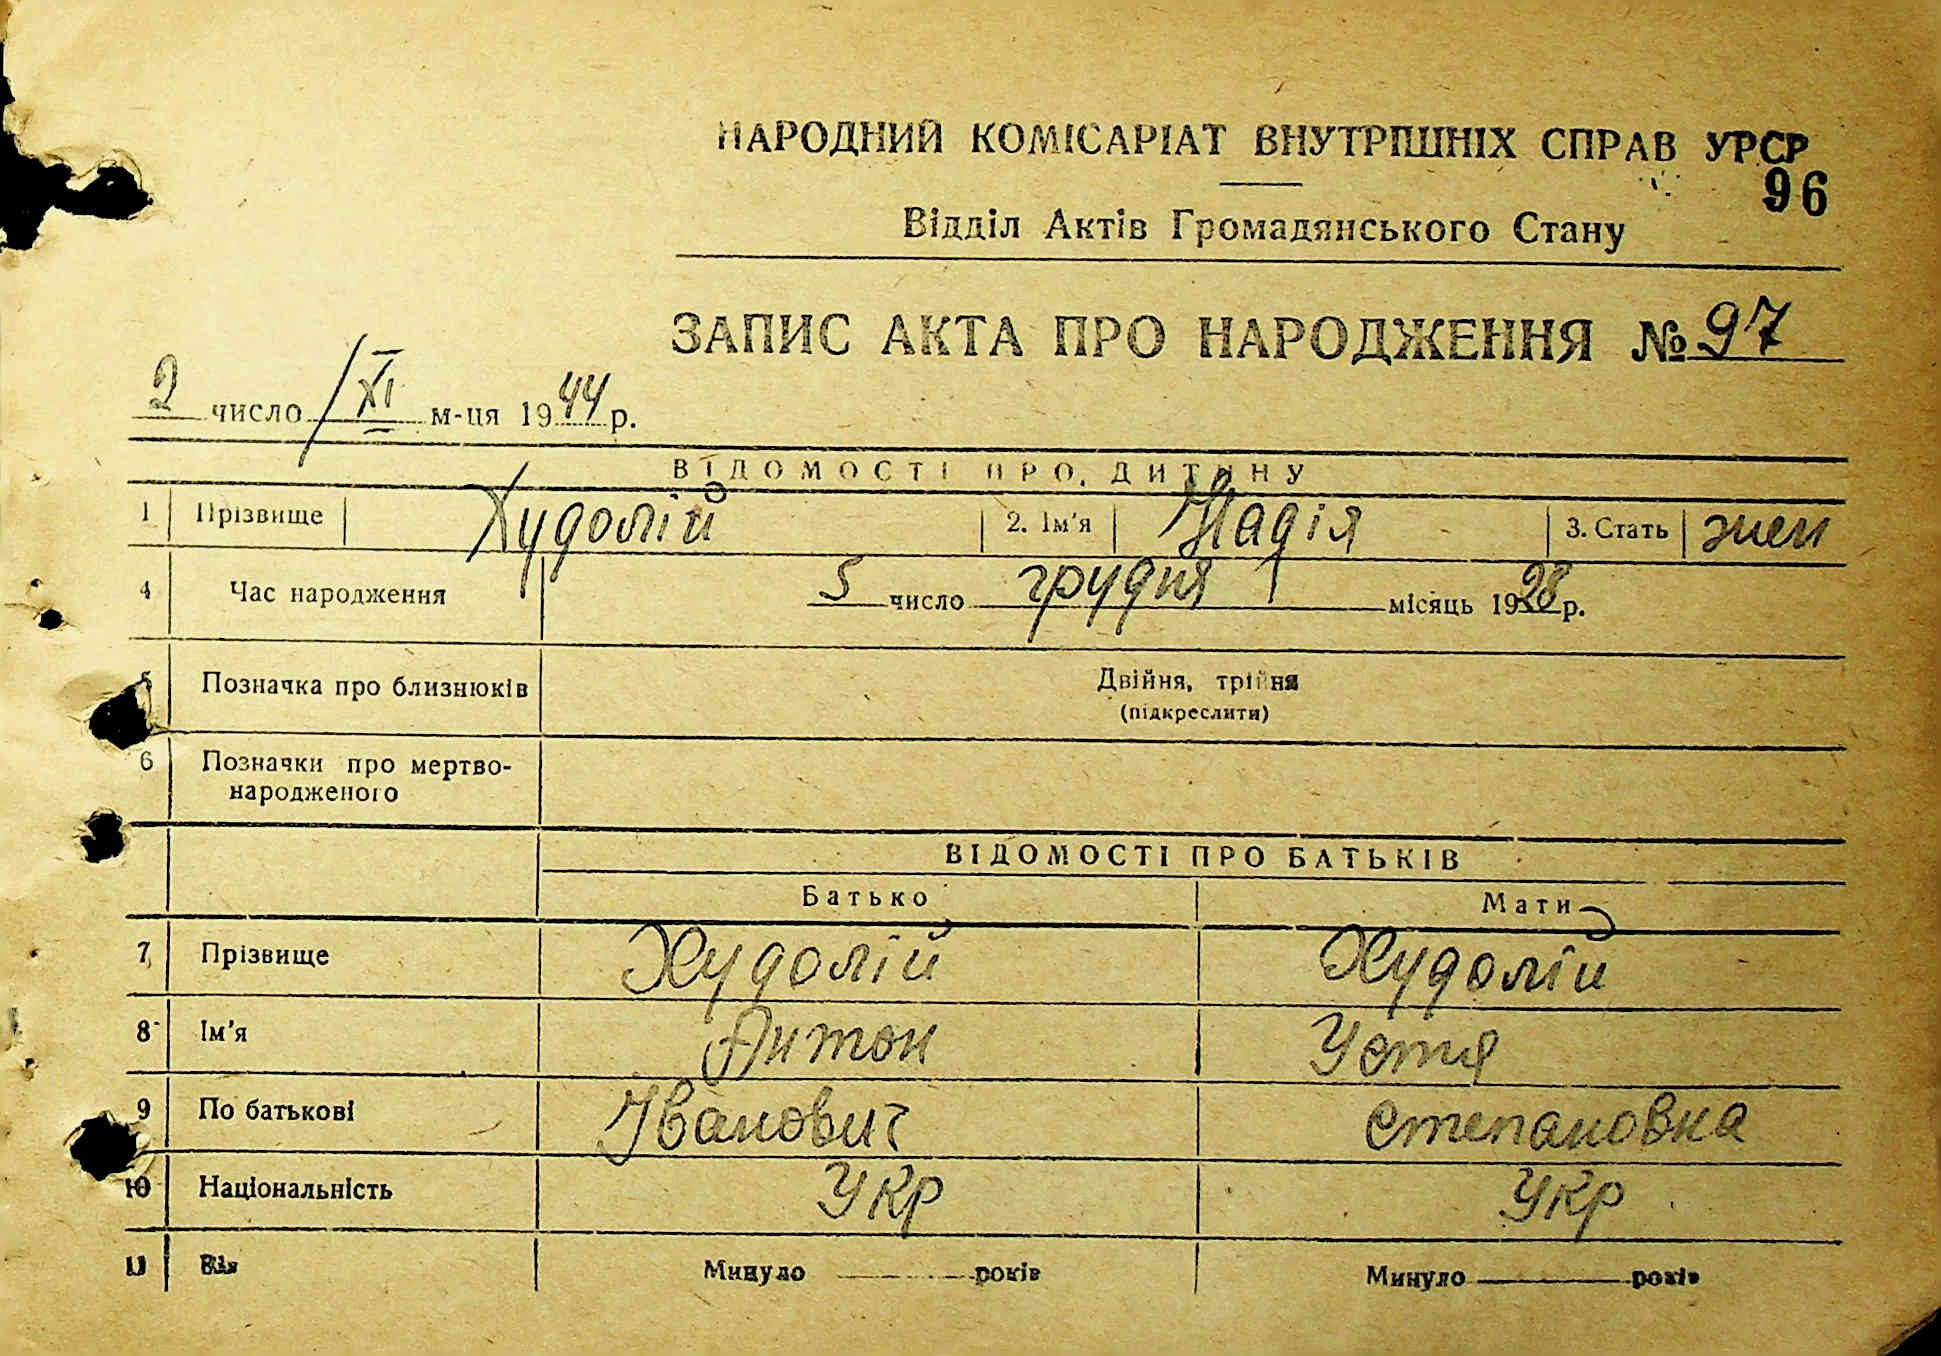 НАРОДНИЙ КОМІСАРІАТ ВНУТРІШНІХ СПРАВ УРСР
96
Відділ Актів Громадянського Стану
ЗАПИС АКТА ПРО НАРОДЖЕННЯ № 97
2 число / XI м-ця 1944 р.
ВІДОМОСТІ ПРО ДИТИНУ
1 Прізвище Худолій 2. Ім'я Надія 3. Стать жен
4 Час народження 5 число грудня місяць 1928 р.
5 Позначка про близнюків Двійня, трійня
(підкреслити)
6 Позначки про мертво-
народженого
ВІДОМОСТІ ПРО БАТЬКІВ
Батько Мати
7 Прізвище Худолій Худолій
8 Ім'я Антон Устя
9 По батькові Іванович Степановна
10 Національність Укр Укр
11 Вік Минуло років Минуло років